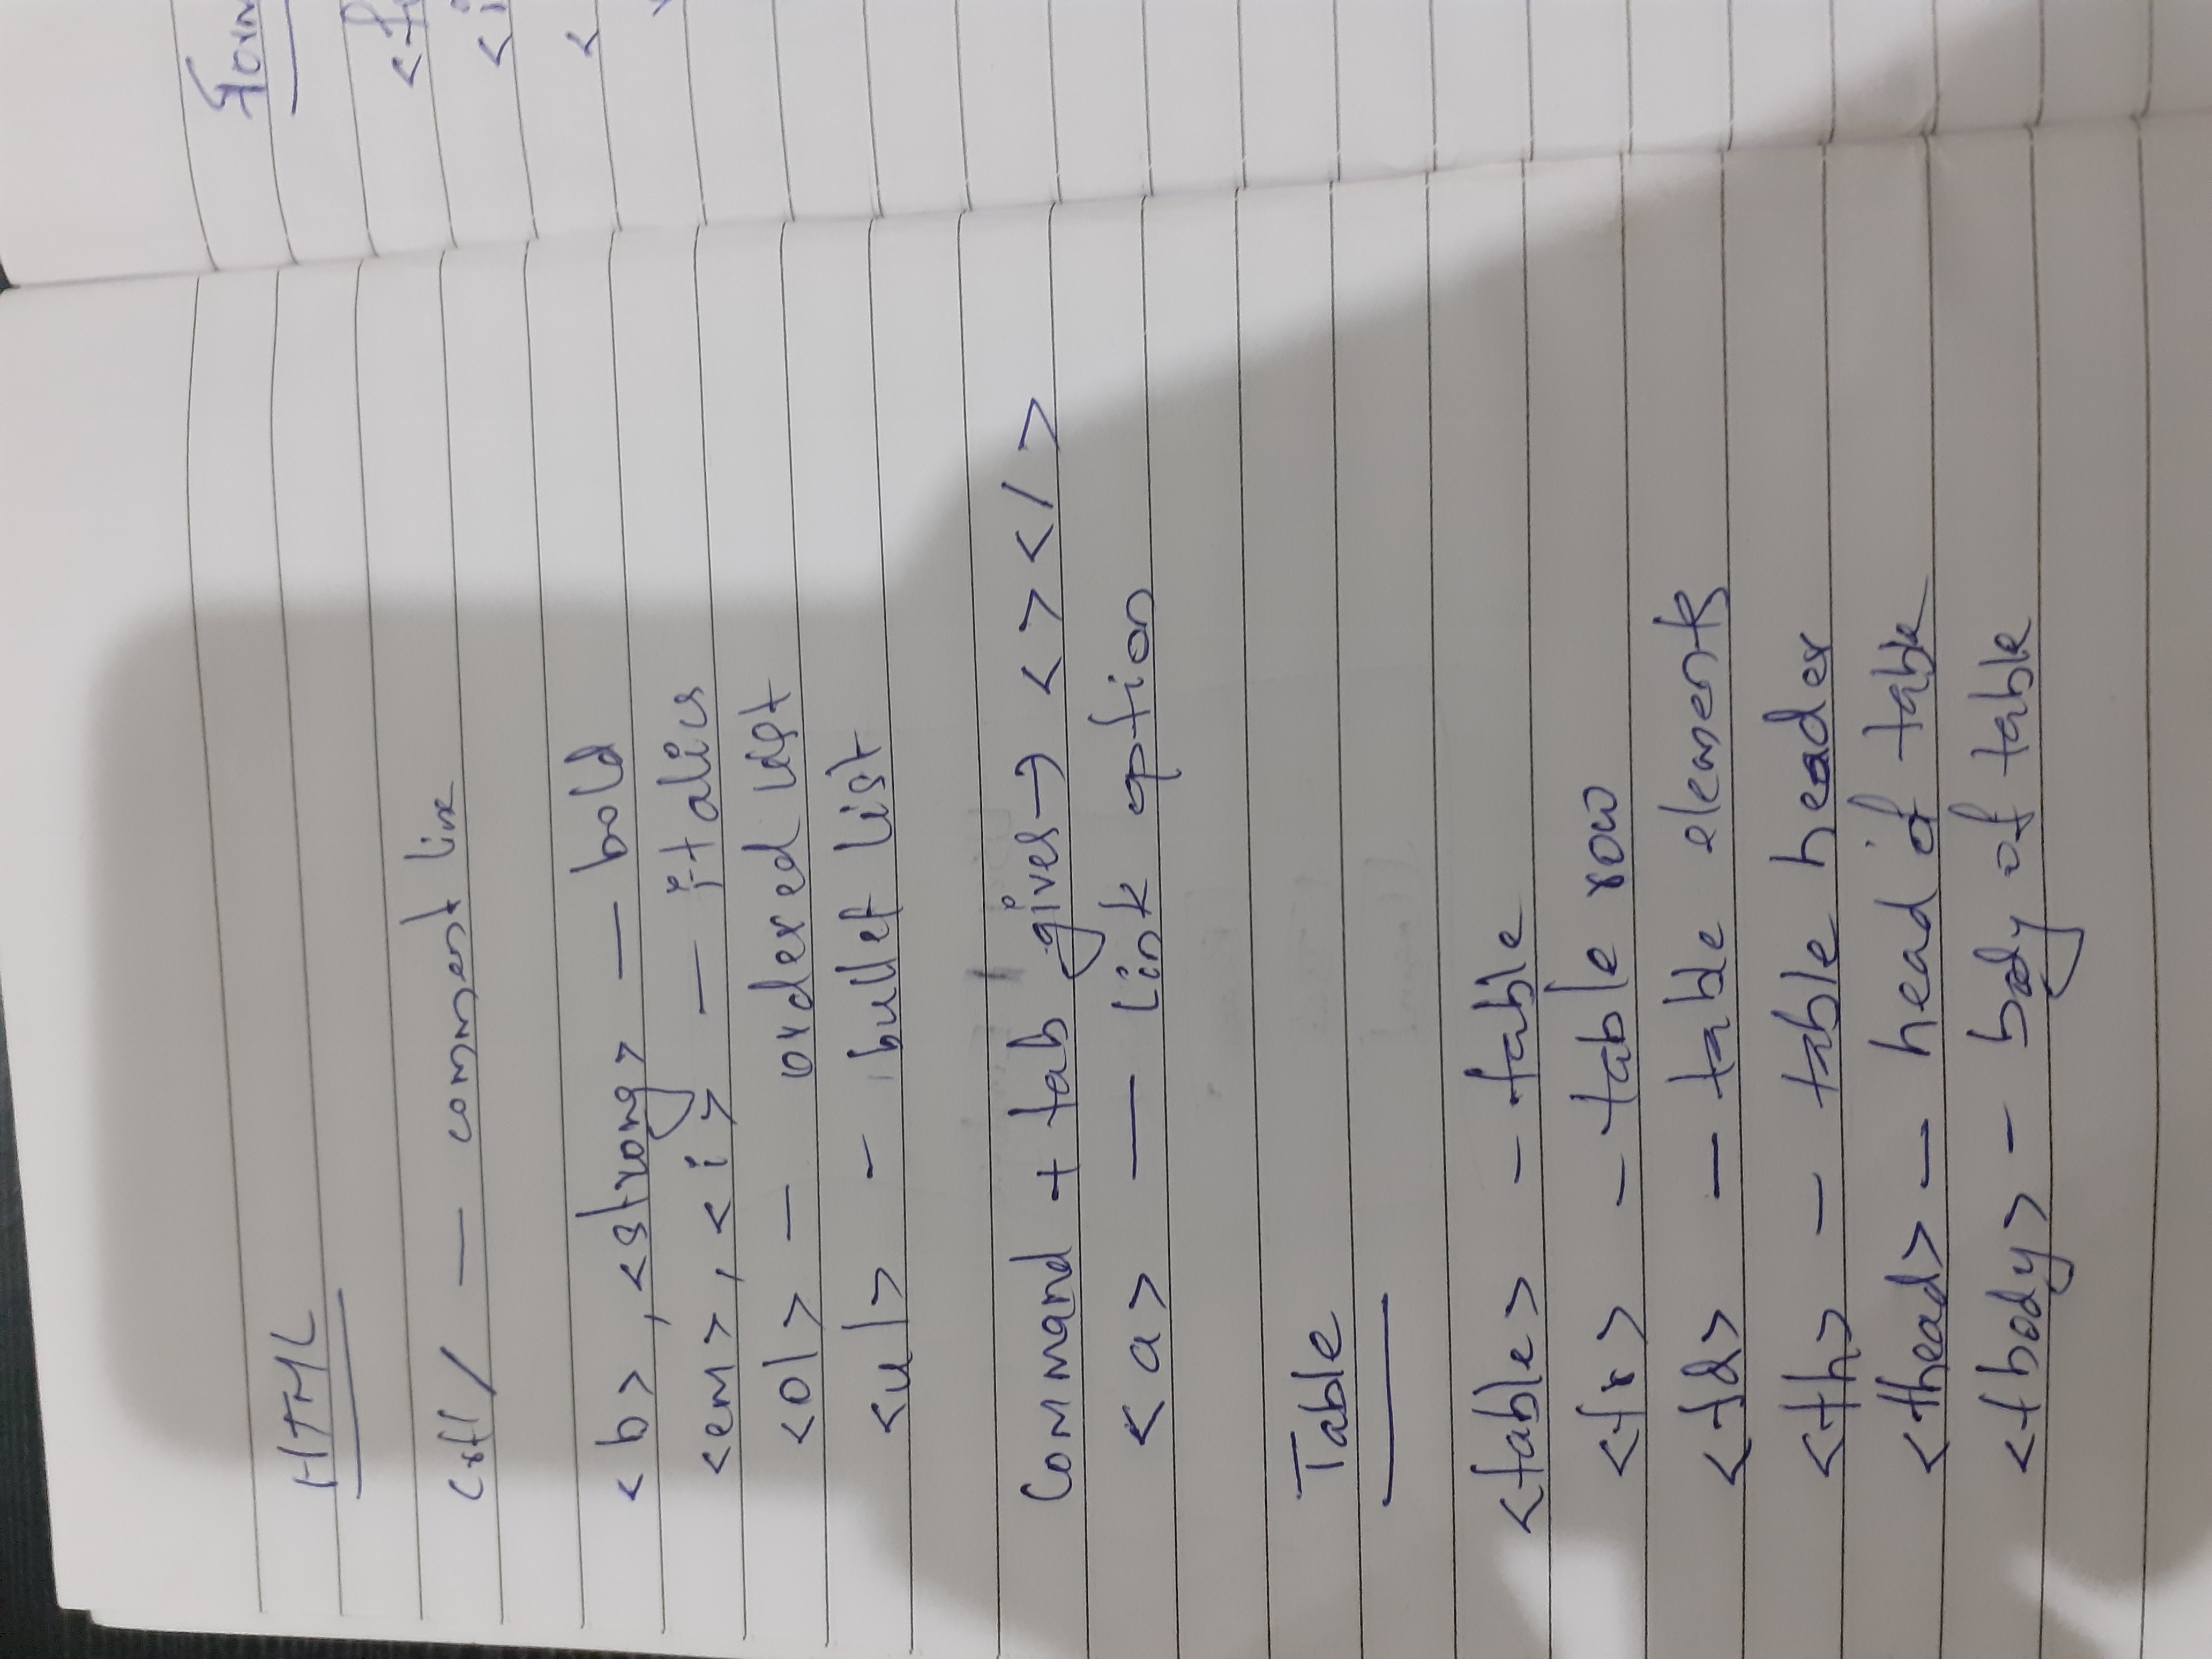 HTML
Crtl / — comment line
<b>, <strong> — bold
<em>, <i> — italics
<ol> — ordered list
<ul> - bullet list
Command + tab gives → < > </ >
<a> — link option
Table
<table> - table
<tr> - table row
<td> - table elements
<th> - table header
<thead> - head of table
<tbody> - body of table
Form
<f
<i
<